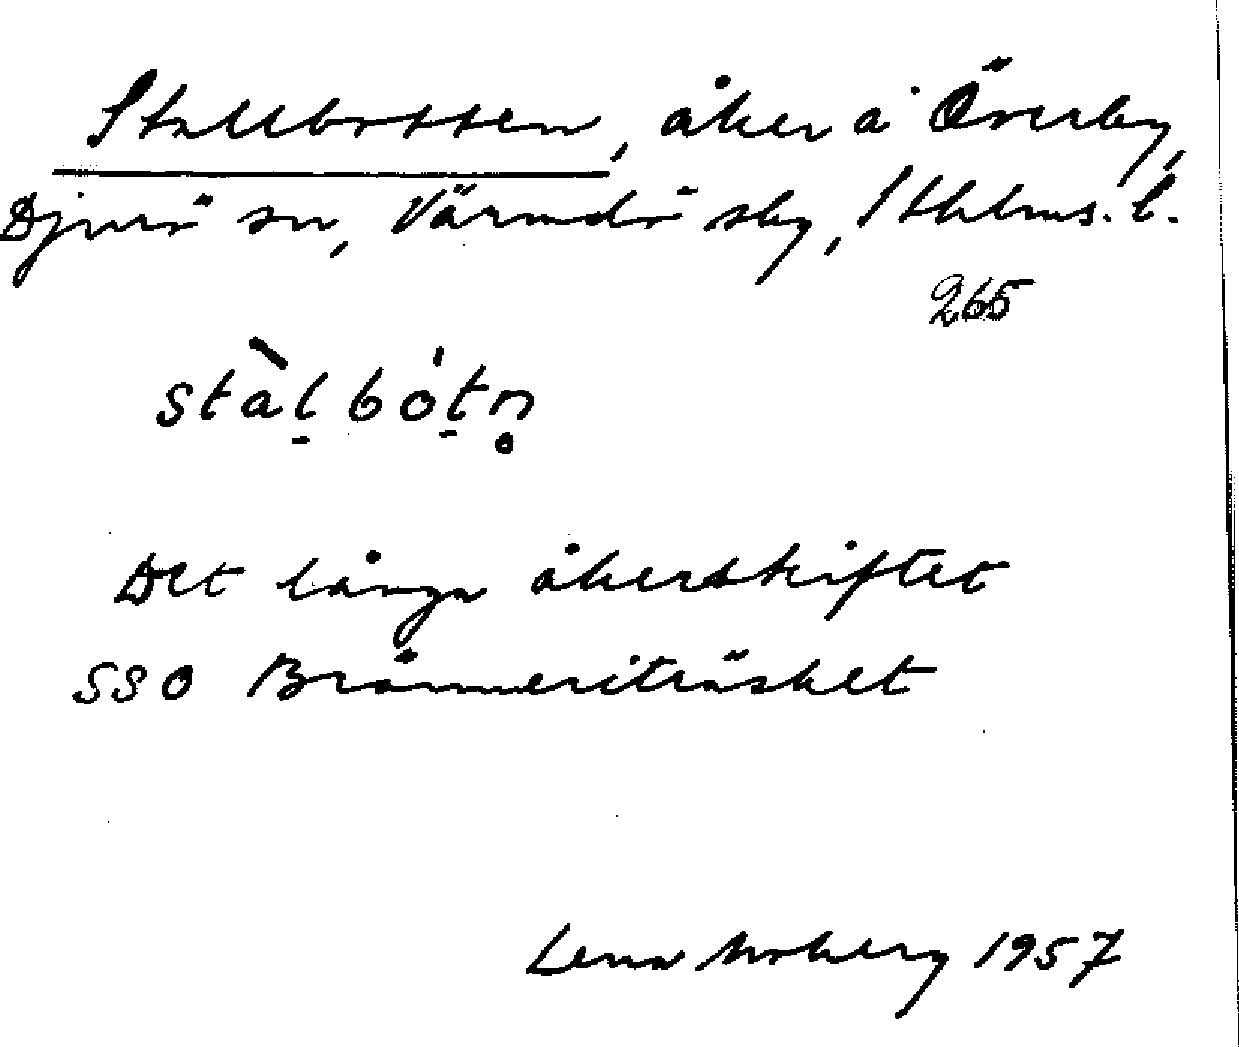 Stallbotten, åker å Överby,
Djurö sn, Värmdö skg, Sthlms. l.
265
stàl̠bót̠n̥
Det långa åkerskiftet
SSO Bränneriträsket
Lena Moberg 1957